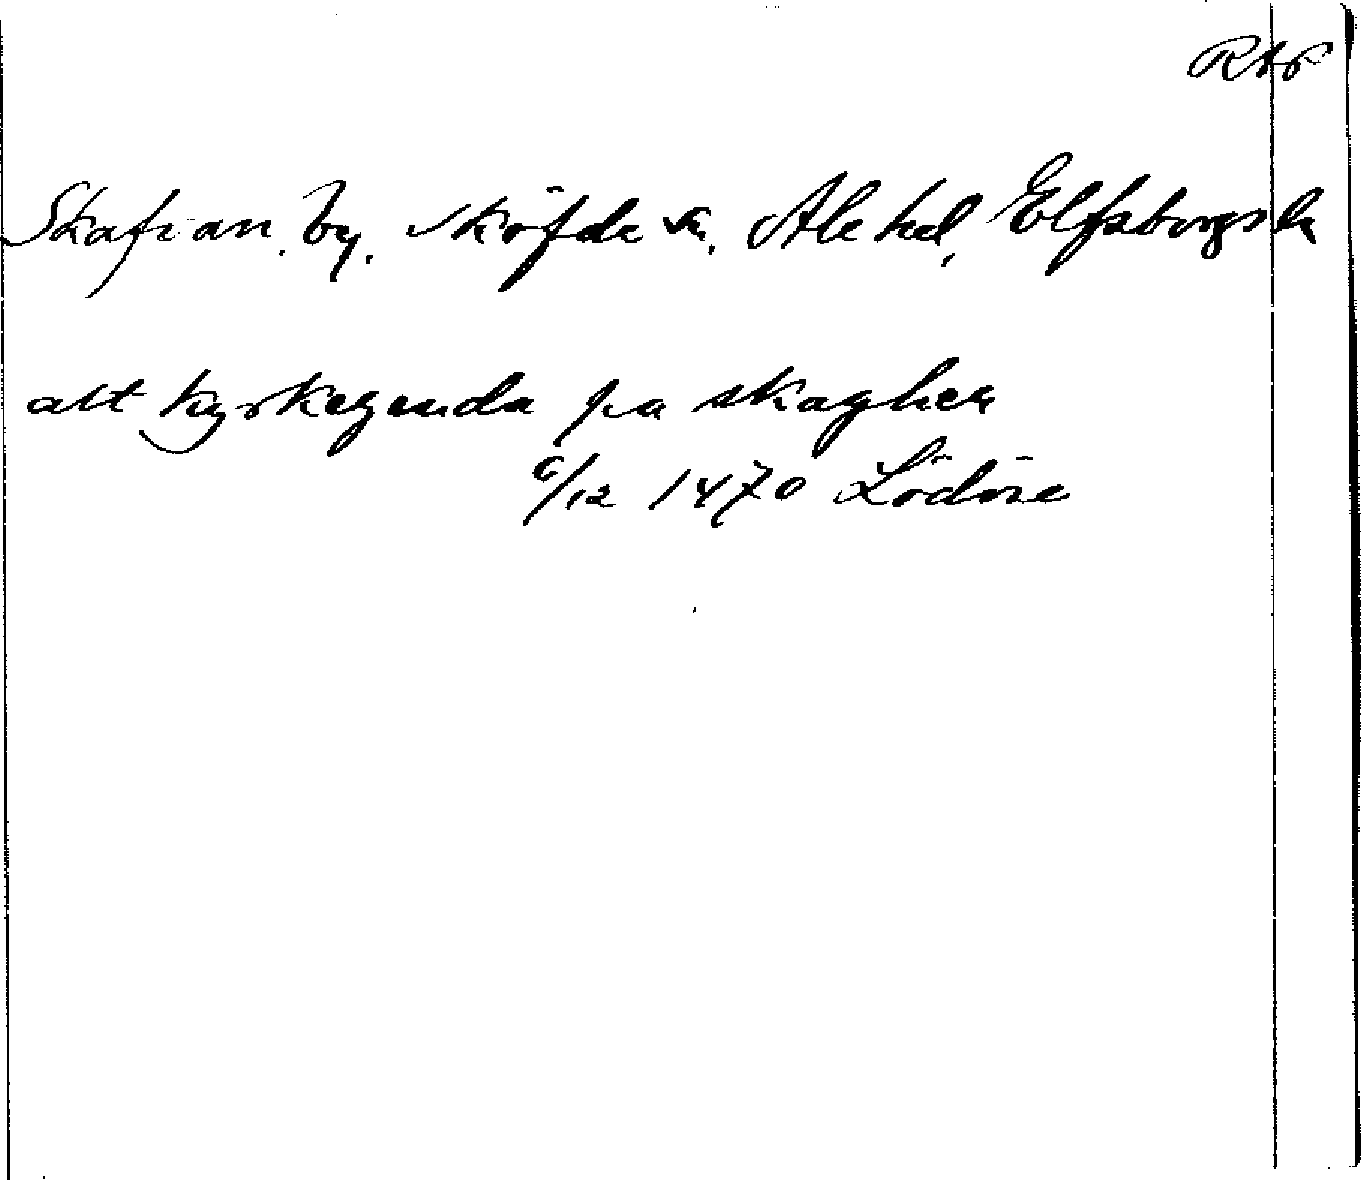 RAP
Skafran. by. Sköfde sn. Ale hd, Elfsborgs l.
alt kyrkegznda pa skaghen
6/12 1470 Lödöse